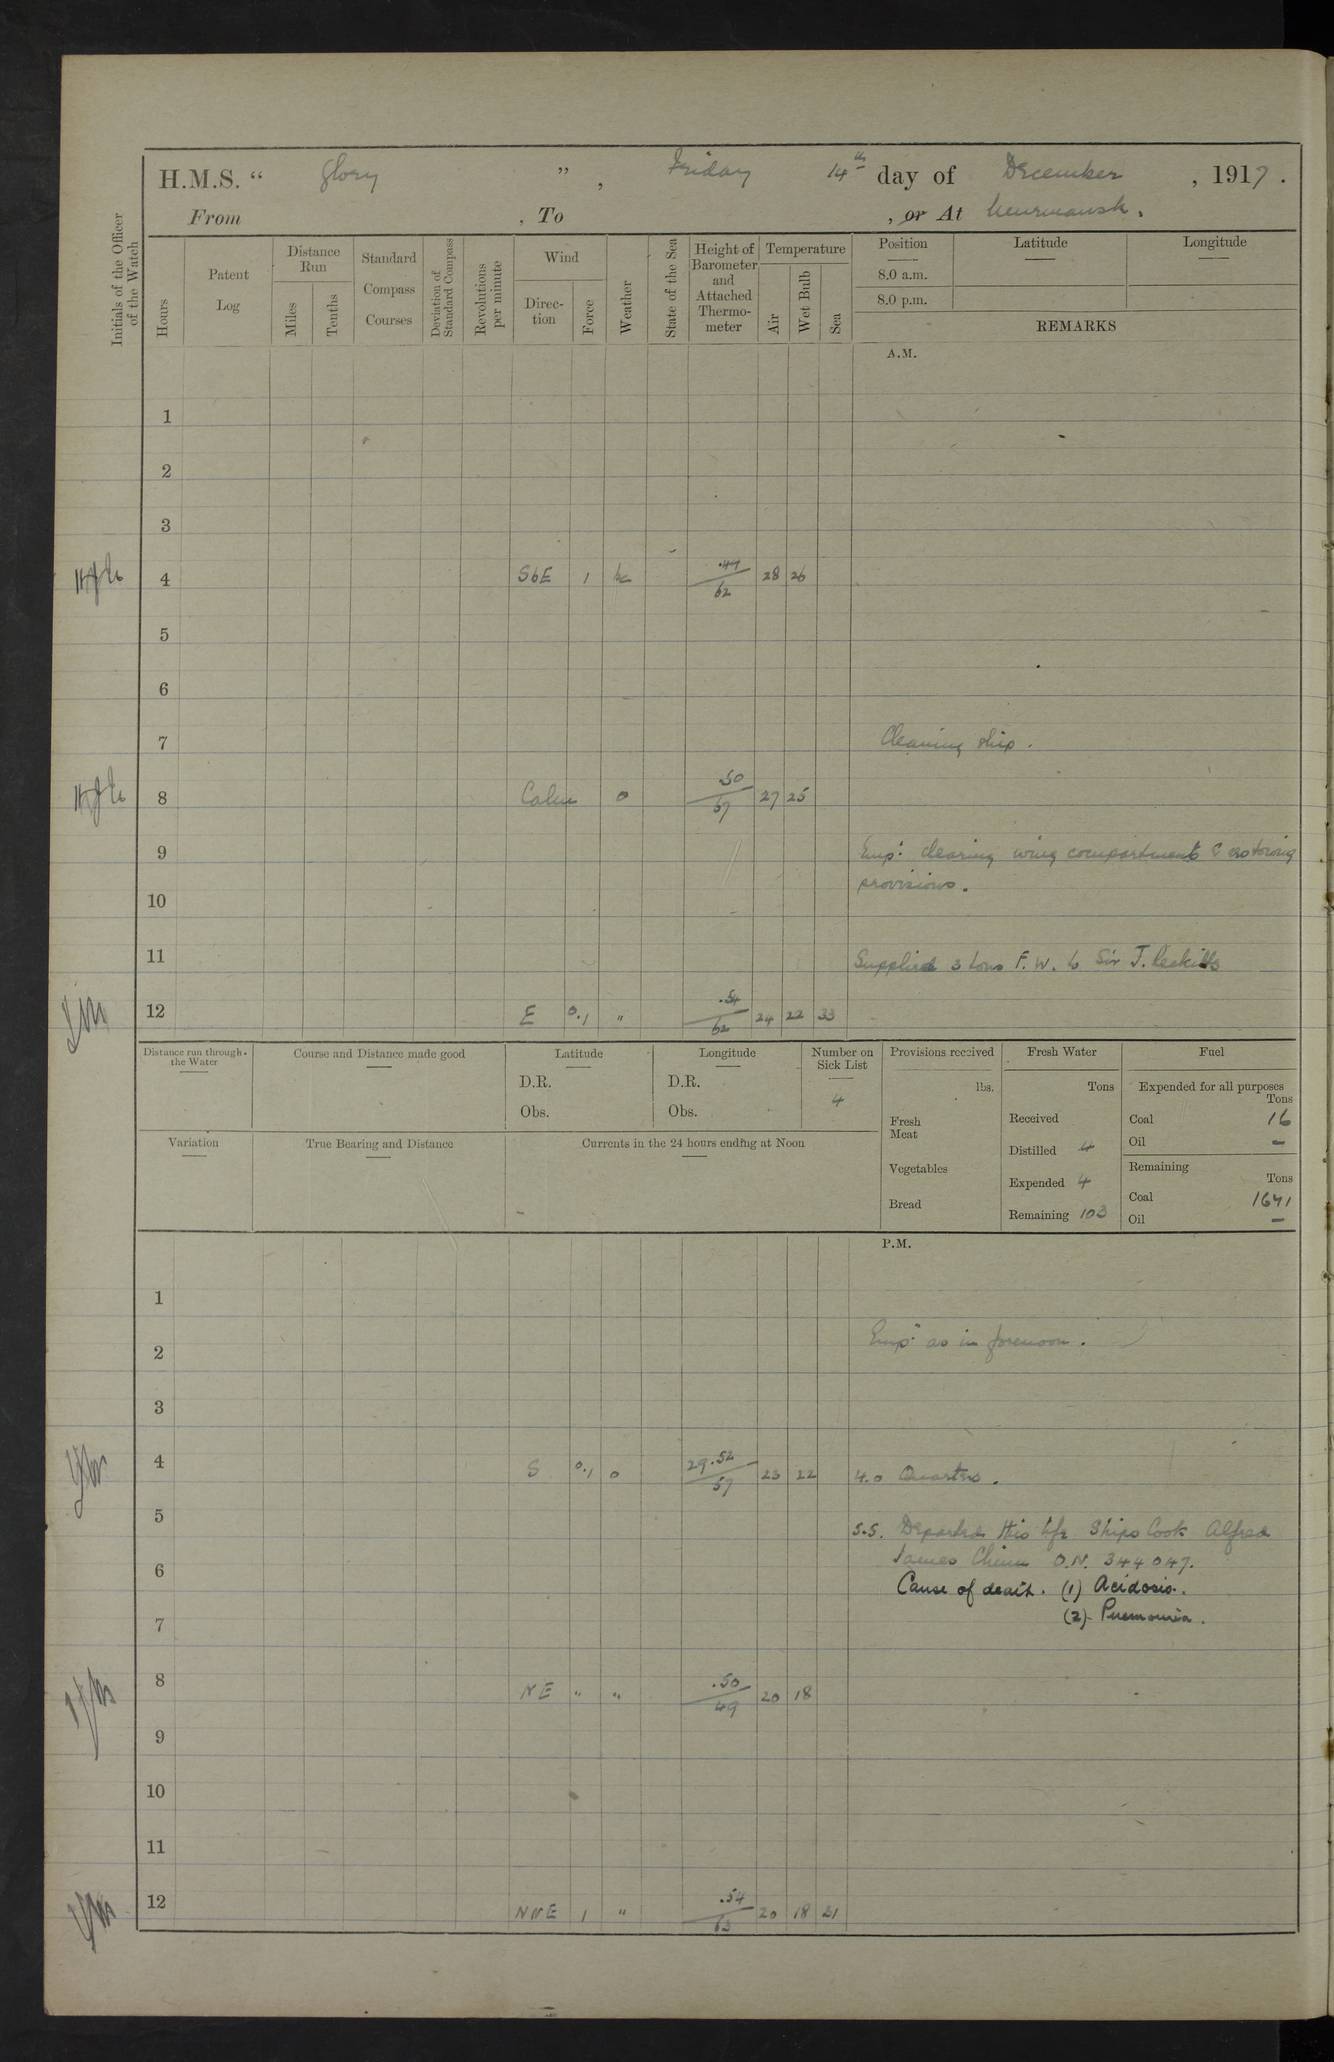 H.M.S. “ Glory ” , Friday 14th day of December , 1917 .
From , To , or At Murmansk .
Initials of the Officer of the Watch
Hours
Patent Log
Distance Run
Miles
Tenths
Standard Compass Courses
Deviation of Standard Compass
Revolutions per minute
Wind
Direc-tion
Force
Weather
State of the Sea
Height of Barometer and Attached Thermo-meter
Temperature
Air
Wet Bulb
Sea
Position
8.0 a.m.
8.0 p.m.
Latitude
Longitude
REMARKS
A.M.
1
2
3
4 SbE 1 bc .47/62 28 26
5
6
7 Cleaning ship .
8 Calm o .50/57 27 25
9 Emp: clearing wing compartments & restoring
10 provisions .
11 Supplied 3 tons F.W. to Sir J.
12 E 0.1 " .54/62 24 22 33
Distance run through the Water
Course and Distance made good
Latitude
D.R.
Obs.
Longitude
D.R.
Obs.
Number on Sick List
4
Variation
True Bearing and Distance
Currents in the 24 hours ending at Noon
Provisions received
lbs.
Fresh Meat
Vegetables
Bread
Fresh Water
Tons
Received
Distilled 4
Expended 4
Remaining 103
Fuel
Expended for all purposes
Tons
Coal 16
Oil –
Remaining
Tons
Coal 1671
Oil –
P.M.
1
2 Emp: as in forenoon .
3
4 S 0.1 o 29.52/57 23 22 4.0 Quarters .
5 5.5. Departed this life Ships Cook Alfred
James Chinn O.N. 344047.
6 Cause of death . (1) Acidosis .
7 (2) Pneumonia .
8 NE " " .50/49 20 18
9
10
11
12 NNE 1 " .54/63 20 18 31